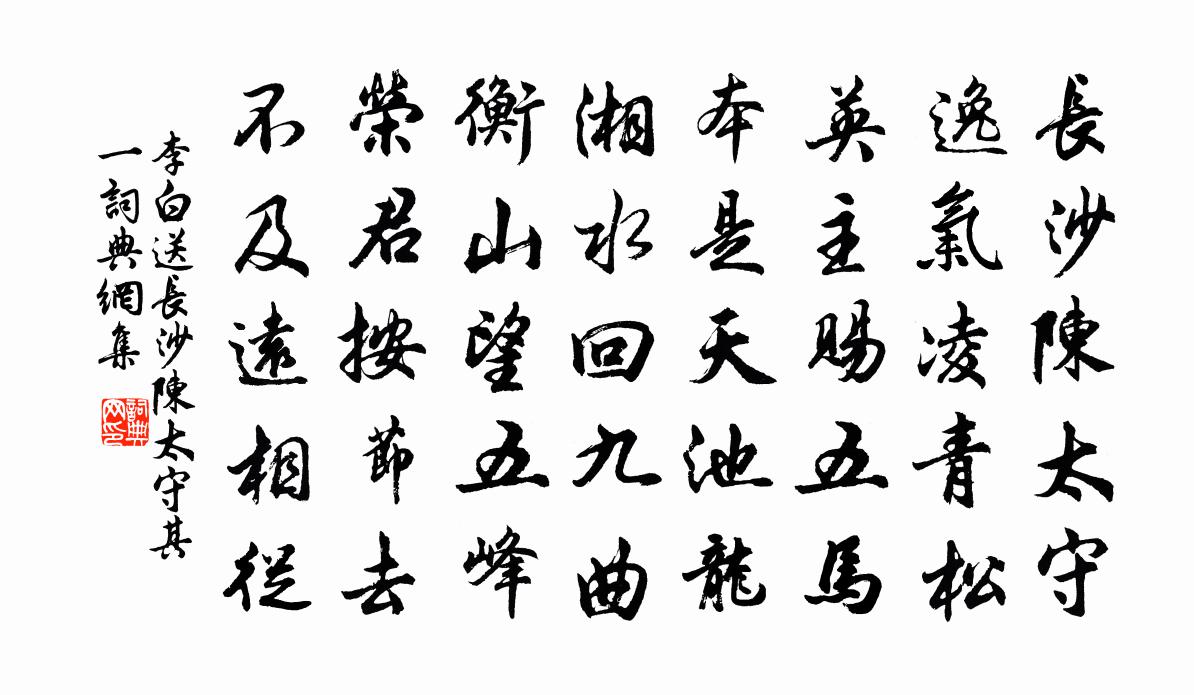 長沙陳太守
逸氣凌青松
英主賜五馬
本是天池龍
湘水回九曲
衡山望五峰
榮君按節去
不及遠相從
李白送長沙陳太守其
一詞典網集
詞典網印